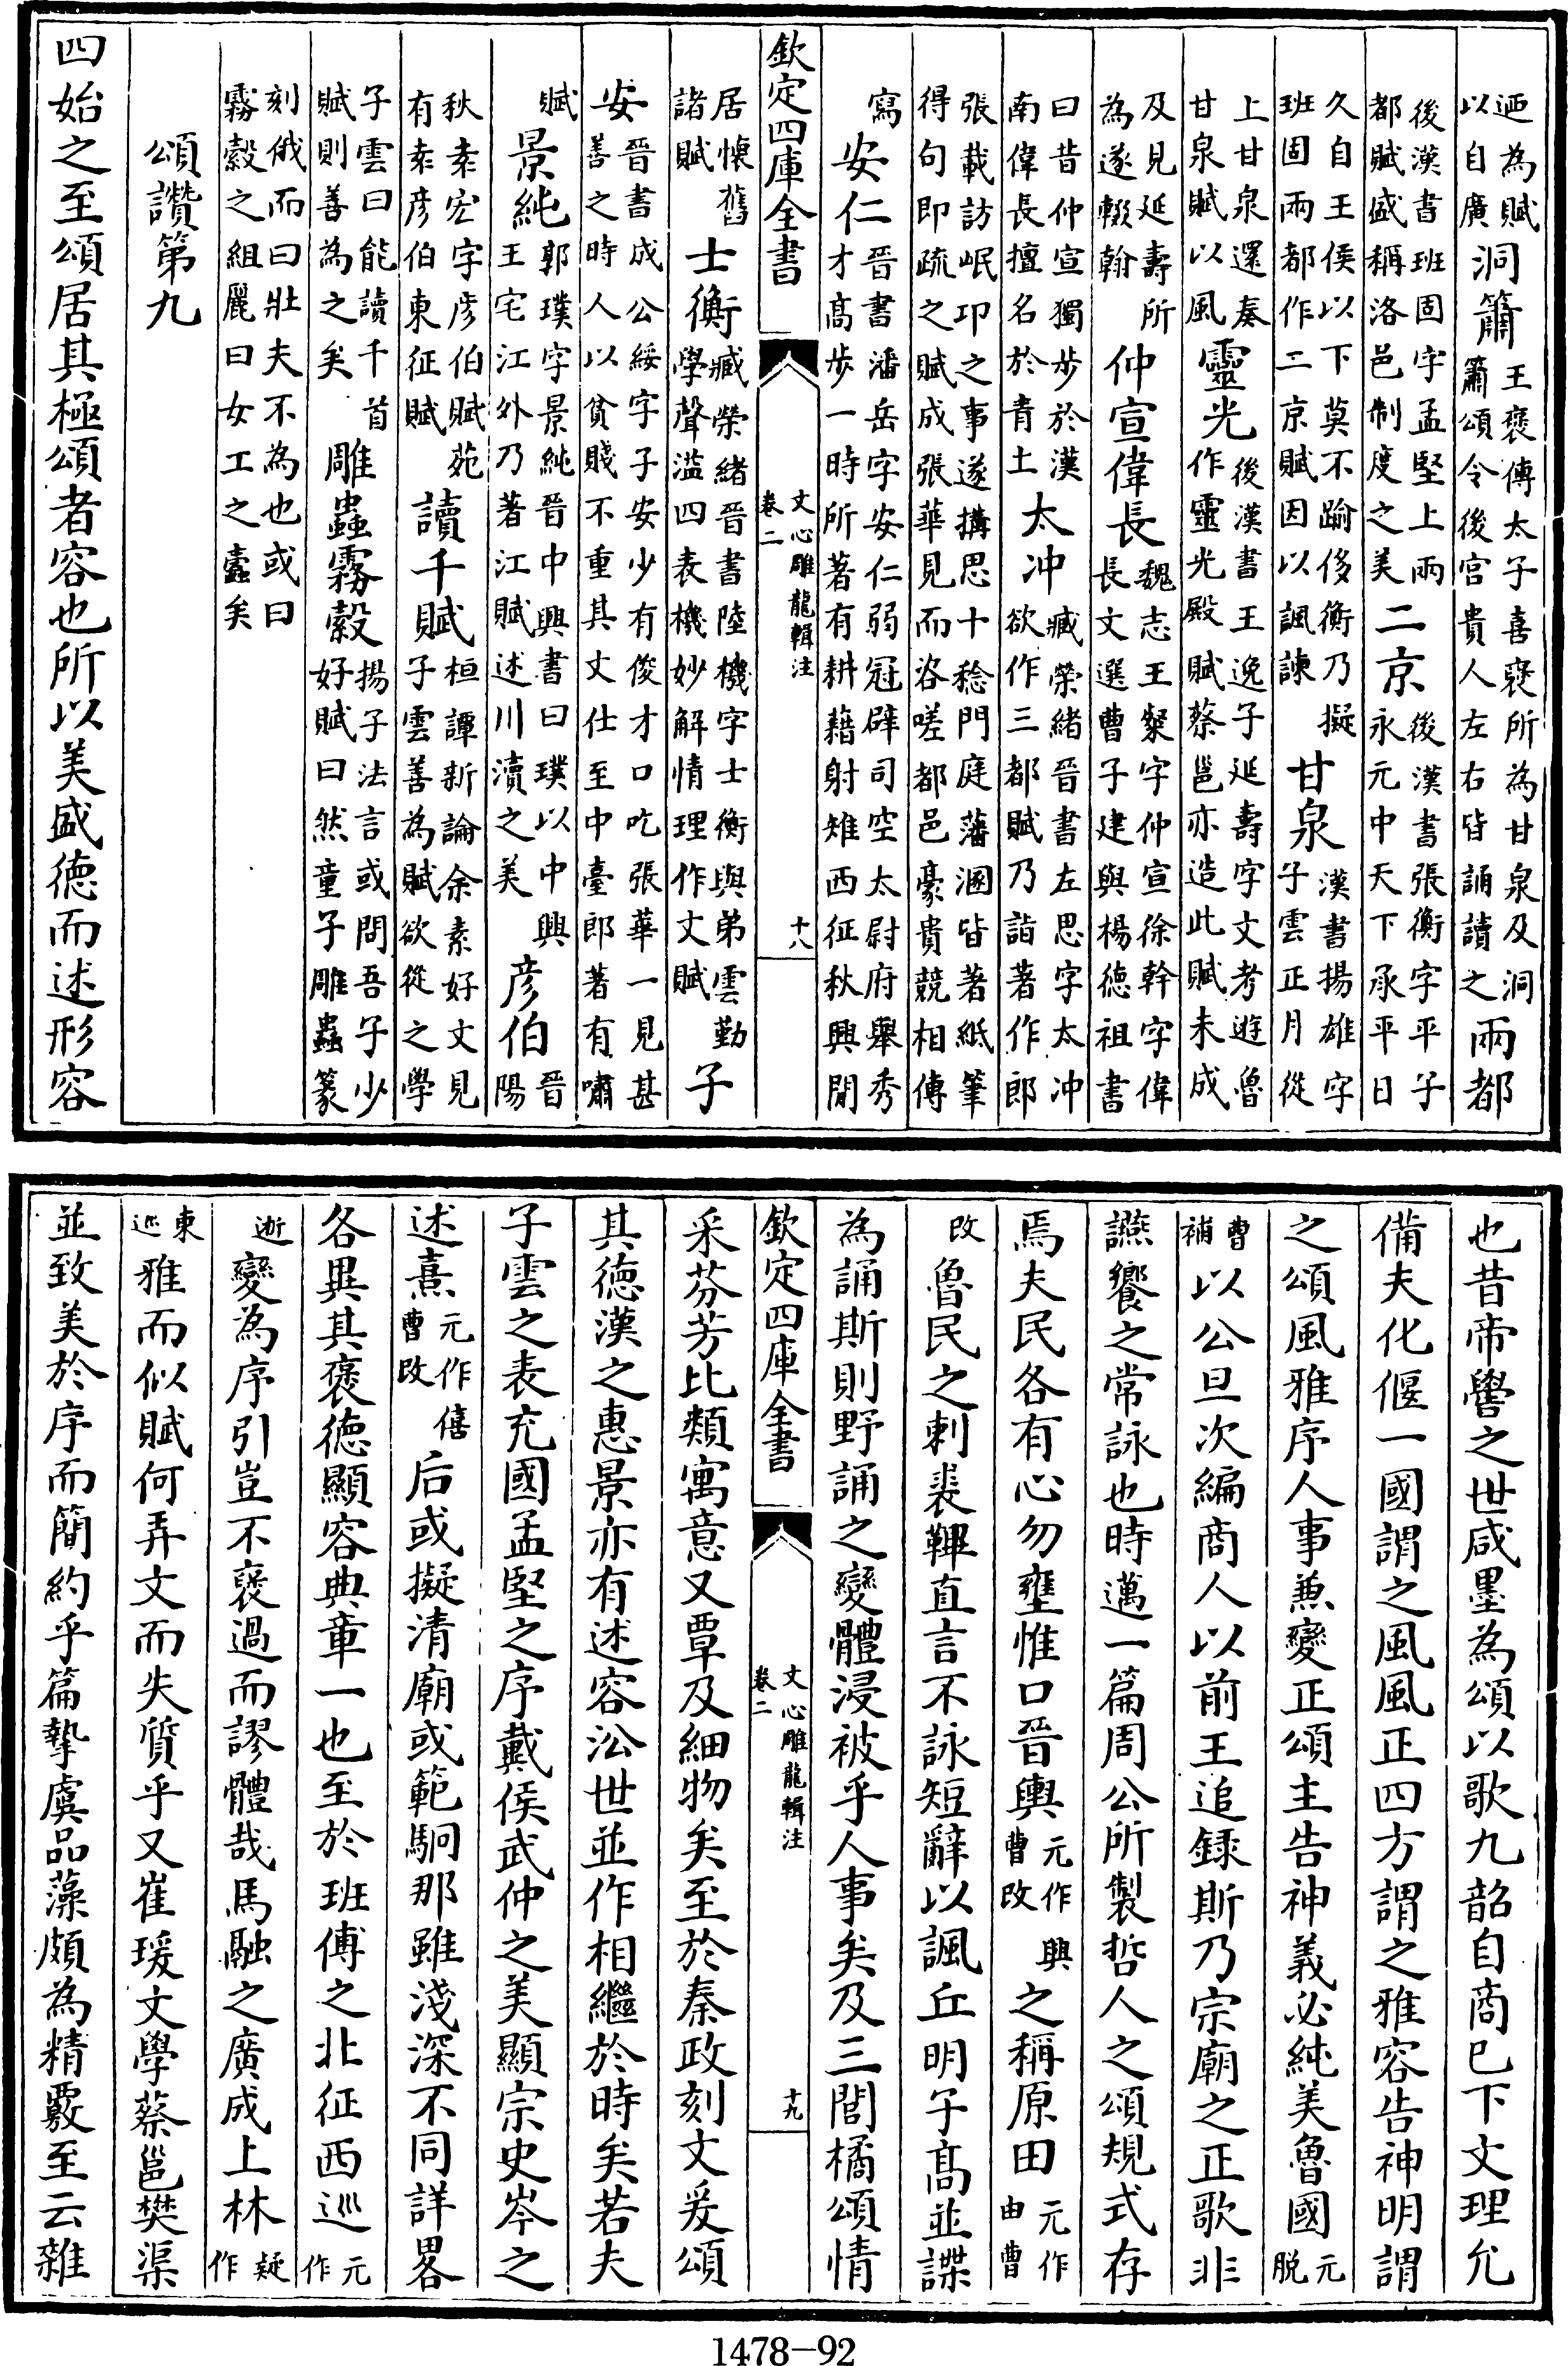 迺為賦以自廣洞簫王褒傳太子喜褒所為甘泉及洞簫頌令後宮貴人左右皆誦讀之兩都
後漢書班固字孟堅上兩都賦盛稱洛邑制度之美二京後漢書張衡字平子永元中天下承平日
久自王侯以下莫不踰侈衡乃擬班固兩都作二京賦因以諷諫甘泉漢書揚雄字子雲正月從
上甘泉還奏甘泉賦以風靈光後漢書王逸子延壽字文考遊魯作靈光殿賦蔡邕亦造此賦未成
及見延壽所為遂輟翰仲宣偉長魏志王粲字仲宣徐幹字偉長文選曹子建與楊德祖書
曰昔仲宣獨步於漢南偉長擅名於青土太冲臧榮緒晉書左思字太冲欲作三都賦乃詣著作郎
張載訪岷卭之事遂搆思十稔門庭藩溷皆著紙筆得句即疏之賦成張華見而咨嗟都邑豪貴競相傳
寫安仁晉書潘岳字安仁弱冠辟司空太尉府舉秀才髙步一時所著有耕藉射雉西征秋興閒
欽定四庫全書 文心雕龍輯注 卷二 十八
居懷舊諸賦士衡臧榮緒晉書陸機字士衡與弟雲勤學聲溢四表機妙解情理作文賦子
安晉書成公綏字子安少有俊才口吃張華一見甚善之時人以貧賤不重其文仕至中臺郎著有嘯
賦景純郭璞字景純晉中興書曰璞以中興王宅江外乃著江賦述川瀆之美彦伯晉陽
秋袁宏字彦伯賦苑有袁彦伯東征賦讀千賦桓譚新論余素好文見子雲善為賦欲從之學
子雲曰能讀千首賦則善為之矣雕蟲霧縠揚子法言或問吾子少好賦曰然童子雕蟲篆
刻俄而曰壯夫不為也或曰霧縠之組麗曰女工之蠹矣
頌讚第九
四始之至頌居其極頌者容也所以美盛德而述形容
也昔帝嚳之世咸墨為頌以歌九韶自商已下文理允
備夫化偃一國謂之風風正四方謂之雅容告神明謂
之頌風雅序人事兼變正頌主告神義必純美魯國元脫
曹補以公旦次編商人以前王追録斯乃宗廟之正歌非
讌饗之常詠也時邁一篇周公所製哲人之頌規式存
焉夫民各有心勿壅惟口晉輿元作興曹改之稱原田元作由曹
改魯民之刺裘鞸直言不詠短辭以諷丘明子髙並諜
為誦斯則野誦之變體浸被乎人事矣及三閭橘頌情
欽定四庫全書 文心雕龍輯注 卷二 十九
采芬芳比類寓意又覃及細物矣至於秦政刻文爰頌
其德漢之惠景亦有述容沿世並作相繼於時矣若夫
子雲之表充國孟堅之序戴侯武仲之美顯宗史岑之
述熹元作僖曹改后或擬清廟或範駉那雖淺深不同詳畧
各異其褒德顯容典章一也至於班傅之北征西巡元作
逝變為序引豈不褒過而謬體哉馬融之廣成上林疑作
東巡雅而似賦何弄文而失質乎又崔瑗文學蔡邕樊渠
並致美於序而簡約乎篇摯虞品藻頗為精覈至云雜
1478-92